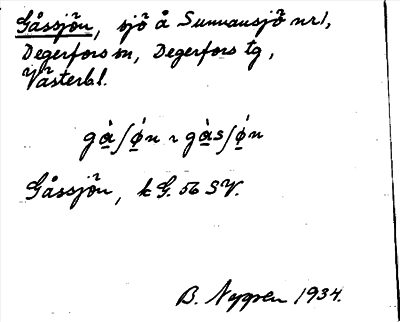 Gåssjön, sjö å Sunnansjö nr 1,
Degerfors sn, Degerfors tg,
Västerbl.
gà̱ʃǿ̱n ~ gà̱sʃǿ̱n
Gåssjön, kG. 56 SV.
B. Nygren 1934.